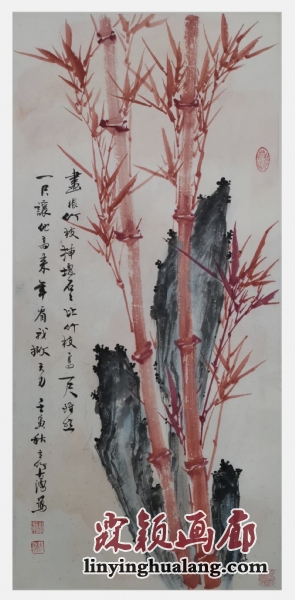 畫根竹枝插塊石比竹枝高一尺雖然
一尺讓他高來年看我掀天力壬寅秋
霖颖画廊
linyinghualang.com